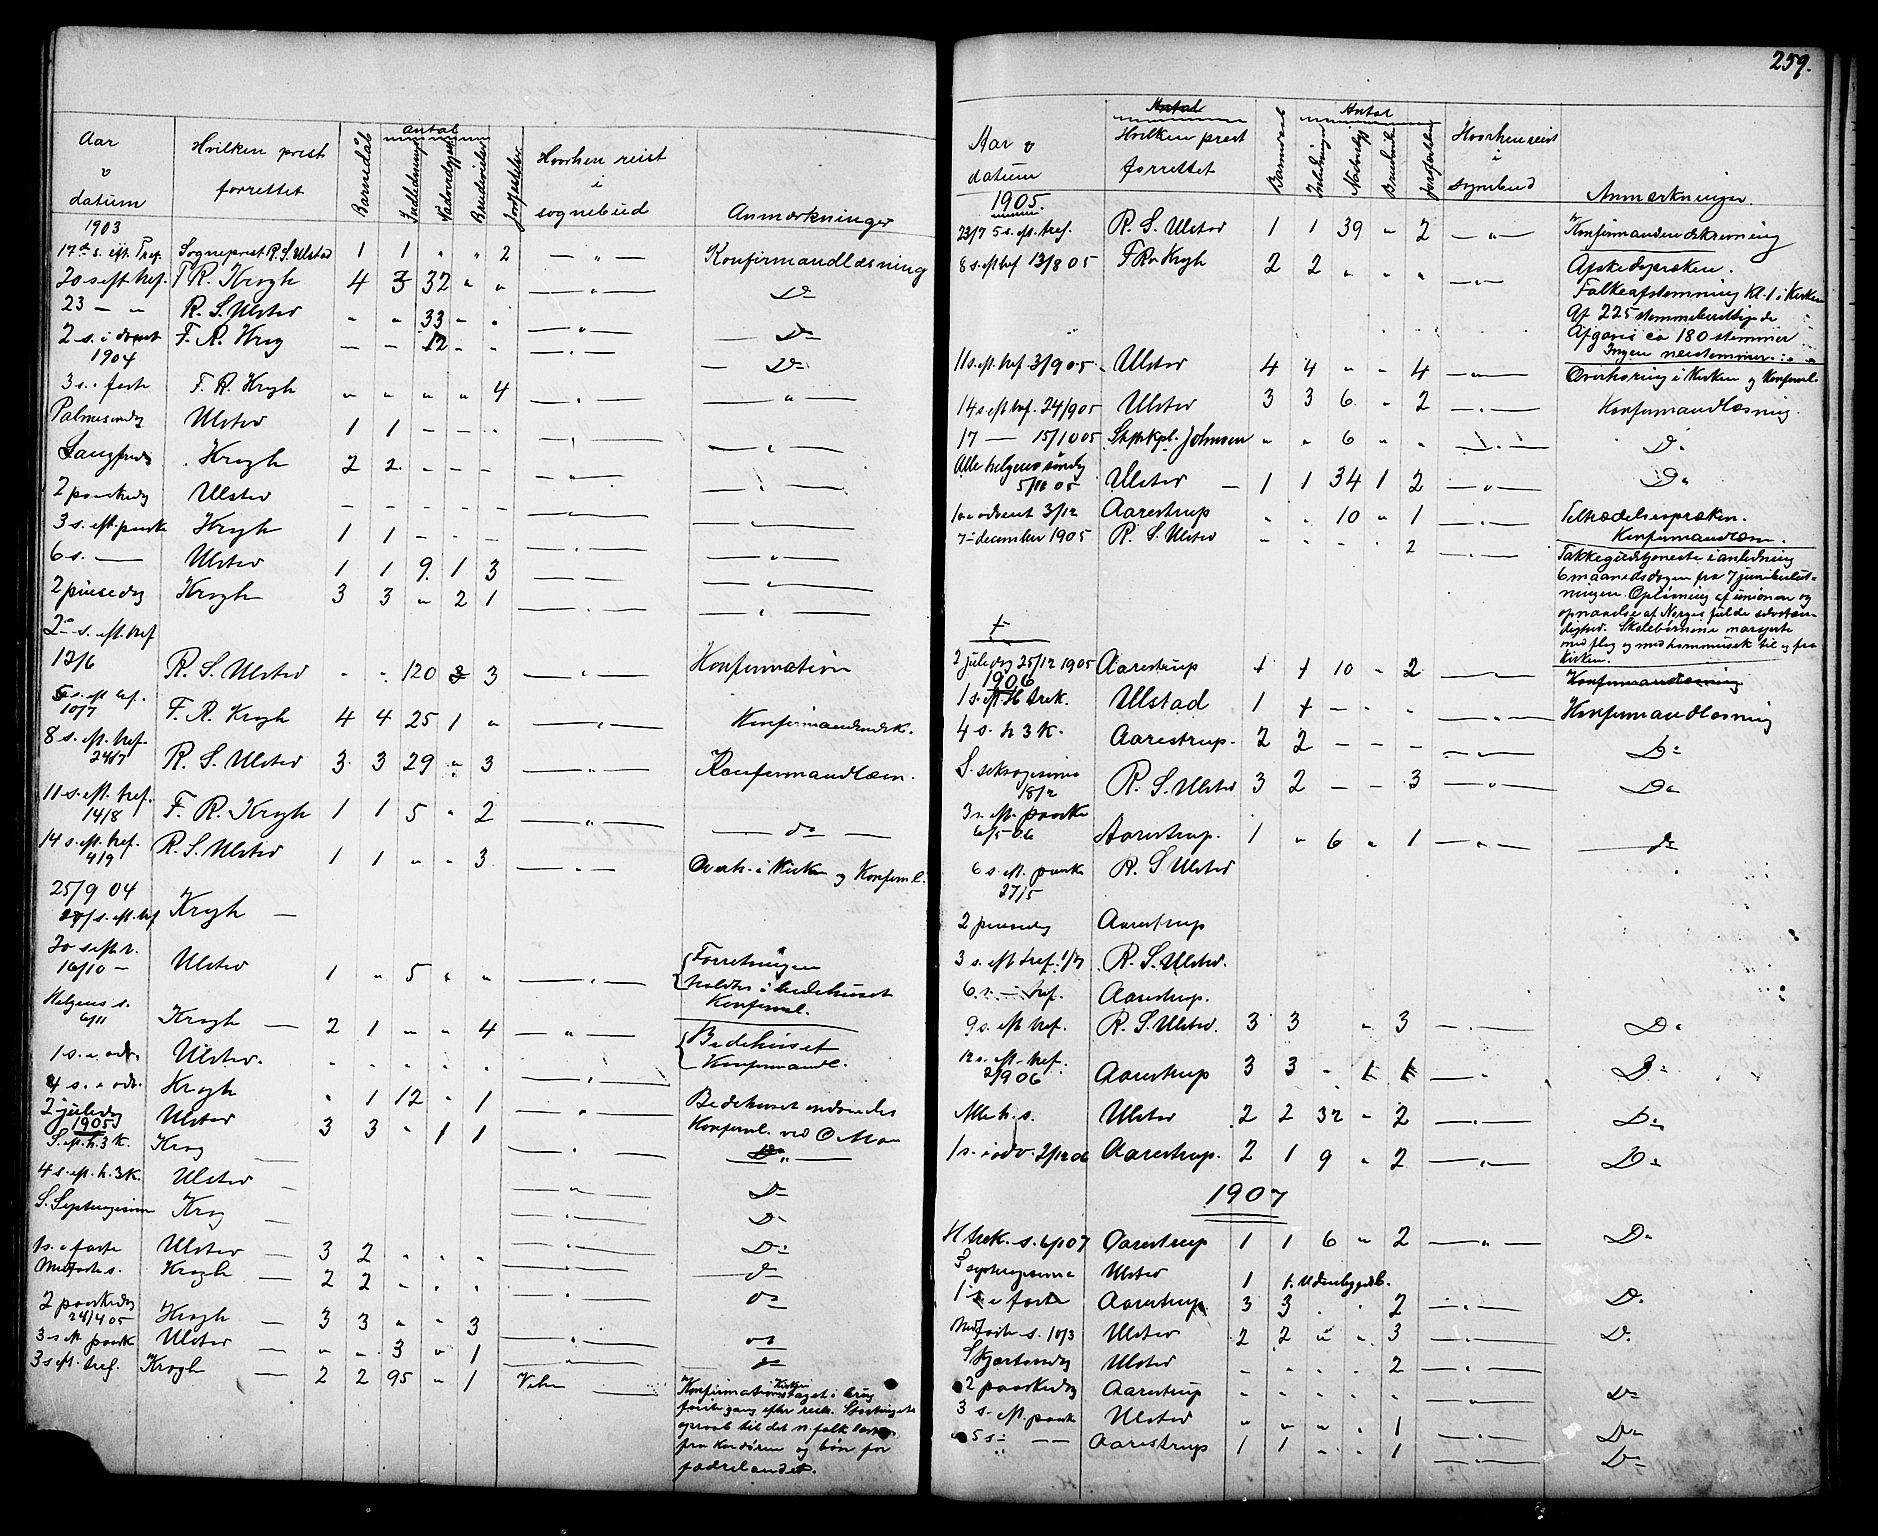 259.
Aar
v
datum
Hvilken prest
forrettet
Antal
Barnedåb
Indledninger
Nadverdgjest
Brudevielser
Jordfæstelser
Hvorhen reist
i
sognebud
Anmærkninger
1903
17de s. eft. Tref. Sogneprest R. S. Ulstad 1 1 " " 2 — " — Konfirmandlæsning
20 s eft tref. F R. Krogh 4 3 32 " " — " — Do
23 — " R. S. Ulstad " " 33 — " — " — Do
2 s. i advent F. R. Krog — — 12 - - — " — — Do
1904
3 s. i faste F. R. Krogh " " " " 4 — " — — " —
Palmesøndag Ulstad 1 1 - - - — " — — " —
Langfredag Krogh 2 2 - - - — " — — " —
2 paaskedag Ulstad - - - - - — " — — " —
3 s. eft. paaske Krogh 1 1 - - - — " — — " —
6 s. — Ulstad 1 1 9 1 3 — " — — " —
2 pinsedag Krogh 3 3 " 2 1 — " — — " —
2 s. eft. tref
12/6 R. S. Ulstad " " 120 3 — " — Konfirmation
5 s. eft tref.
10/7 F. R. Krogh 4 4 25 1 " — " — Konfirmandindsk.
8 s. eft. tref.
24/7 R. S. Ulstad 3 3 29 " 3 — " — Konfirmandlæsn.
11 s. eft. tref.
14/8 F. R. Krogh 1 1 5 " 2 — " — — do —
14 s. eft. tref.
4/9 R. S. Ulstad 1 1 " " 3 — " — Overh. i Kirken og Konfirml.
25/9 04
s. eft. tref Krogh —
20 s eft tr.
16/10 — Ulstad 1 " 5 " " — " — Forretningen
holdtes i bedehuset
Konfirml.
Helgens s.
6/11 Krogh — 2 1 " " 4 — " — Bedehuset
Konfirmandl.
1 s. i adv. Ulstad. " " " " " — " —
4 s. i adv. Krogh " 1 12 " 1 — " — Bedehuset
2 juledag Ulstad 3 3 " 1 1 Konfirml. ved O Moe
1905
S. eft. h. 3 K. Krog — " — Do
4 s. eft. h. 3 K. Ulstad — — " — Do
S. Septuagesima Krog — — " — Do
1 s. i faste Ulstad — 3 2 " " " — " — Do
Midfaste s. Krogh — 2 2 " " " — " — Do
2 paaskedag
24/4 05 Krogh — 3 3 " " 3 — " — Do
3 s eft paask Ulstad — " " 3 " 1 — " — Do
3 s eft. tref. Krogh — 2 2 95 " 1 — do
Kirken
Konfirmation taget i brug
første gang efter
opraab til det n. folk
fra Kordøren og bøn for
fædrelandet.
Aar v
datum
Antal
Hvilken prest
forrettet
Antal
Barnedaab
Indledninger
Nadverdgj
Brudevielser
Jordfæstelser
Hvorhen reist
i
sognebud
Anmærkninger.
1905.
23/7 5 s. eft. tref. R. S. Ulstad 1 1 39 " 2 — " — Konfirmandindskrivning
8 s. eft tref 13/8 05 F R. Krogh 2 2 " " " — " — Afskedspræken.
Folkeafstemning Kl. 1 i Kirken
Af 225 stemmeberettigede
Afgaves ca 180 stemmer
Ingen neistemmer.
11 s. eft. tref 3/9 05 Ulstad 4 4 " " 4 — " — Overhøring i Kirken og Konfirml.
14 s eft tref. 24/9 05 Ulstad 3 3 6 " 2 — " — Konfirmandlæsning.
17 — 15/10 05 Stiftskpl. Johnsen " " 6 " " — " — Do
Alle helgens søndag
5/11 05 Ulstad — 1 1 34 1 2 — " — Do
1 s i advent 3/12 Aarestrup " " 10 " 1 — " — Tiltrædelsespræken.
Konfirmandlæsn.
7 december 1905 R. S. Ulstad - - - - 2 — " — Takkegudstjeneste i anledning
6 maanedsdagen fra 7 junibeslut-
ningen. Opløsning af unionen og
opnaaelse af Norges fulde selvstæn-
dighed. Skolebørnene marsjerte
med flag og med hornmusik til og fra
Kirken.
2 juledag 25/12 1905 Aarestrup 1 1 10 " 2 — " — Konfirmandlæsning
1906
1 s. eft H trek. Ulstad 1 1 — - " — " — Konfirmandlæsning
4 s. h 3 K. Aarestrup. 2 2 — — — — " — Do
S. seksagesima
18/2 R. S. Ulstad 3 2 — — 3 — " — Do
3 s. eft. paaske
6/5 06 Aarestrup. 1 " 6 " 1 — " — — do
6 s. eft. paaske
27/5 R. S Ulstad
2 pinsedag Aarestrup
3 s. eft tref. 1/7 R. S. Ulstad.
6. s. — tref. Aarestrup.
9 s. eft tref. R. S. Ulstad. 3 3 " 3 — " — Do
12 s. eft. tref.
2/9 06 Aarestrup 3 3 - 1 1 — " — Do
Alle h. s. Ulstad 2 2 32 " 2 — " — Do
1 s. i adv. 2/12 06 Aarestrup. 2 1 9 " 2 — " — Do
1907
H trek. s. 6/1 07 Aarestrup 1 1 6 " 2 — " — Do
S septuagesima Ulstad 1 1. Udenbygdsb.
1 s. i faste Aarestrup 3 3 " " 2 — " — Do
Midfaste s. 10/3 Ulstad 2 2 " " 3 — " — Do
Skjærtorsdag Ulstad " " " " 2 — " —
2 paaskedag Aarestrup " " " " " — " — Do
3 s. eft. paask Ulstad " " " " 1 — " — Do
5 s — — Aarestrup 1 1 " " 1 — " — Do